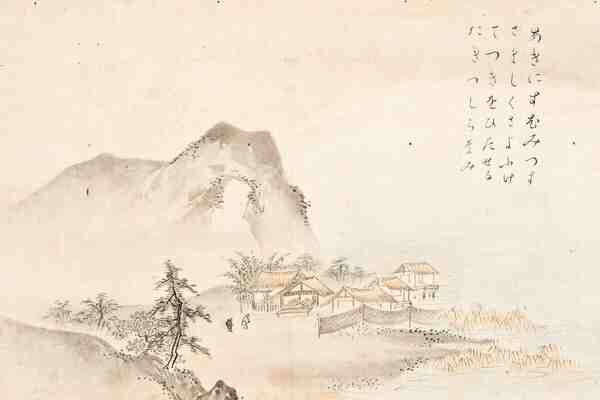 あきにすむみつす
さましくさよふけ
てつきをひたせる
おきつしらなみ